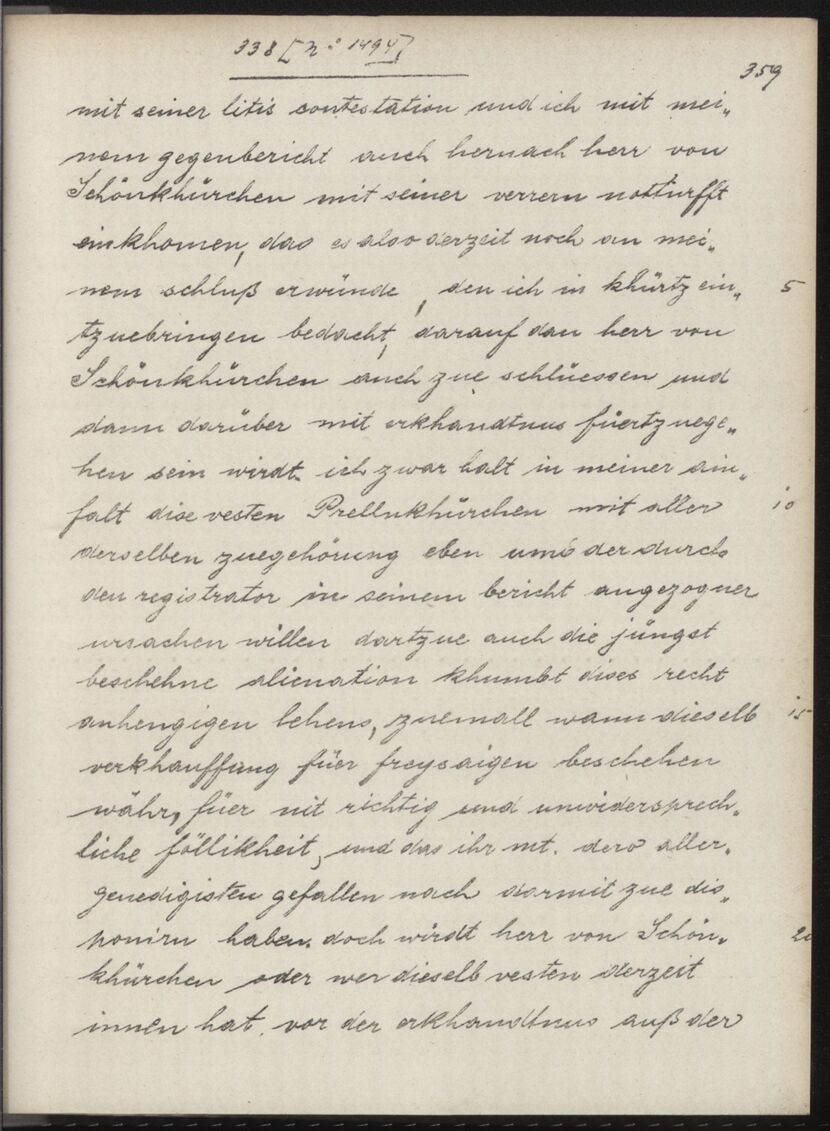 338 [N° 1494]
359
mit seiner litis contestation und ich mit mei„
nem gegenbericht auch hernach herr von
Schönkhürchen mit seiner verrern notturfft
einkhomen, das es also derzeit noch an mei„
nem schluß erwünde, den ich in khürtz ein„ 5
tzuebringen bedacht, darauf dan herr von
Schönkhürchen auch zue schlüessen und
dann darüber mit erkhandtnus füertzuege„
hen sein wirdt. ich zwar halt in meiner ain„
falt dise vesten Prellnkhürchen mit aller 10
derselben zuegehörung eben umb der durch
den registrator in seinem bericht angezogner
ursachen willen dartzue auch die jüngst
beschehne alienation khumbt dises recht
anhengigen lehens, zuemall wann dieselb 15
verkhauffung füer freysaigen beschehen
währ, füer nit richtig und unwidersprech„
liche föllikheit, und das ihr mt. dero aller„
genedigisten gefallen nach darmit zue dis„
poniren haben. doch wirdt herr von Schön„ 20
khürchen oder wer dieselb vesten derzeit
innen hat, vor der erkhandtnus auß der